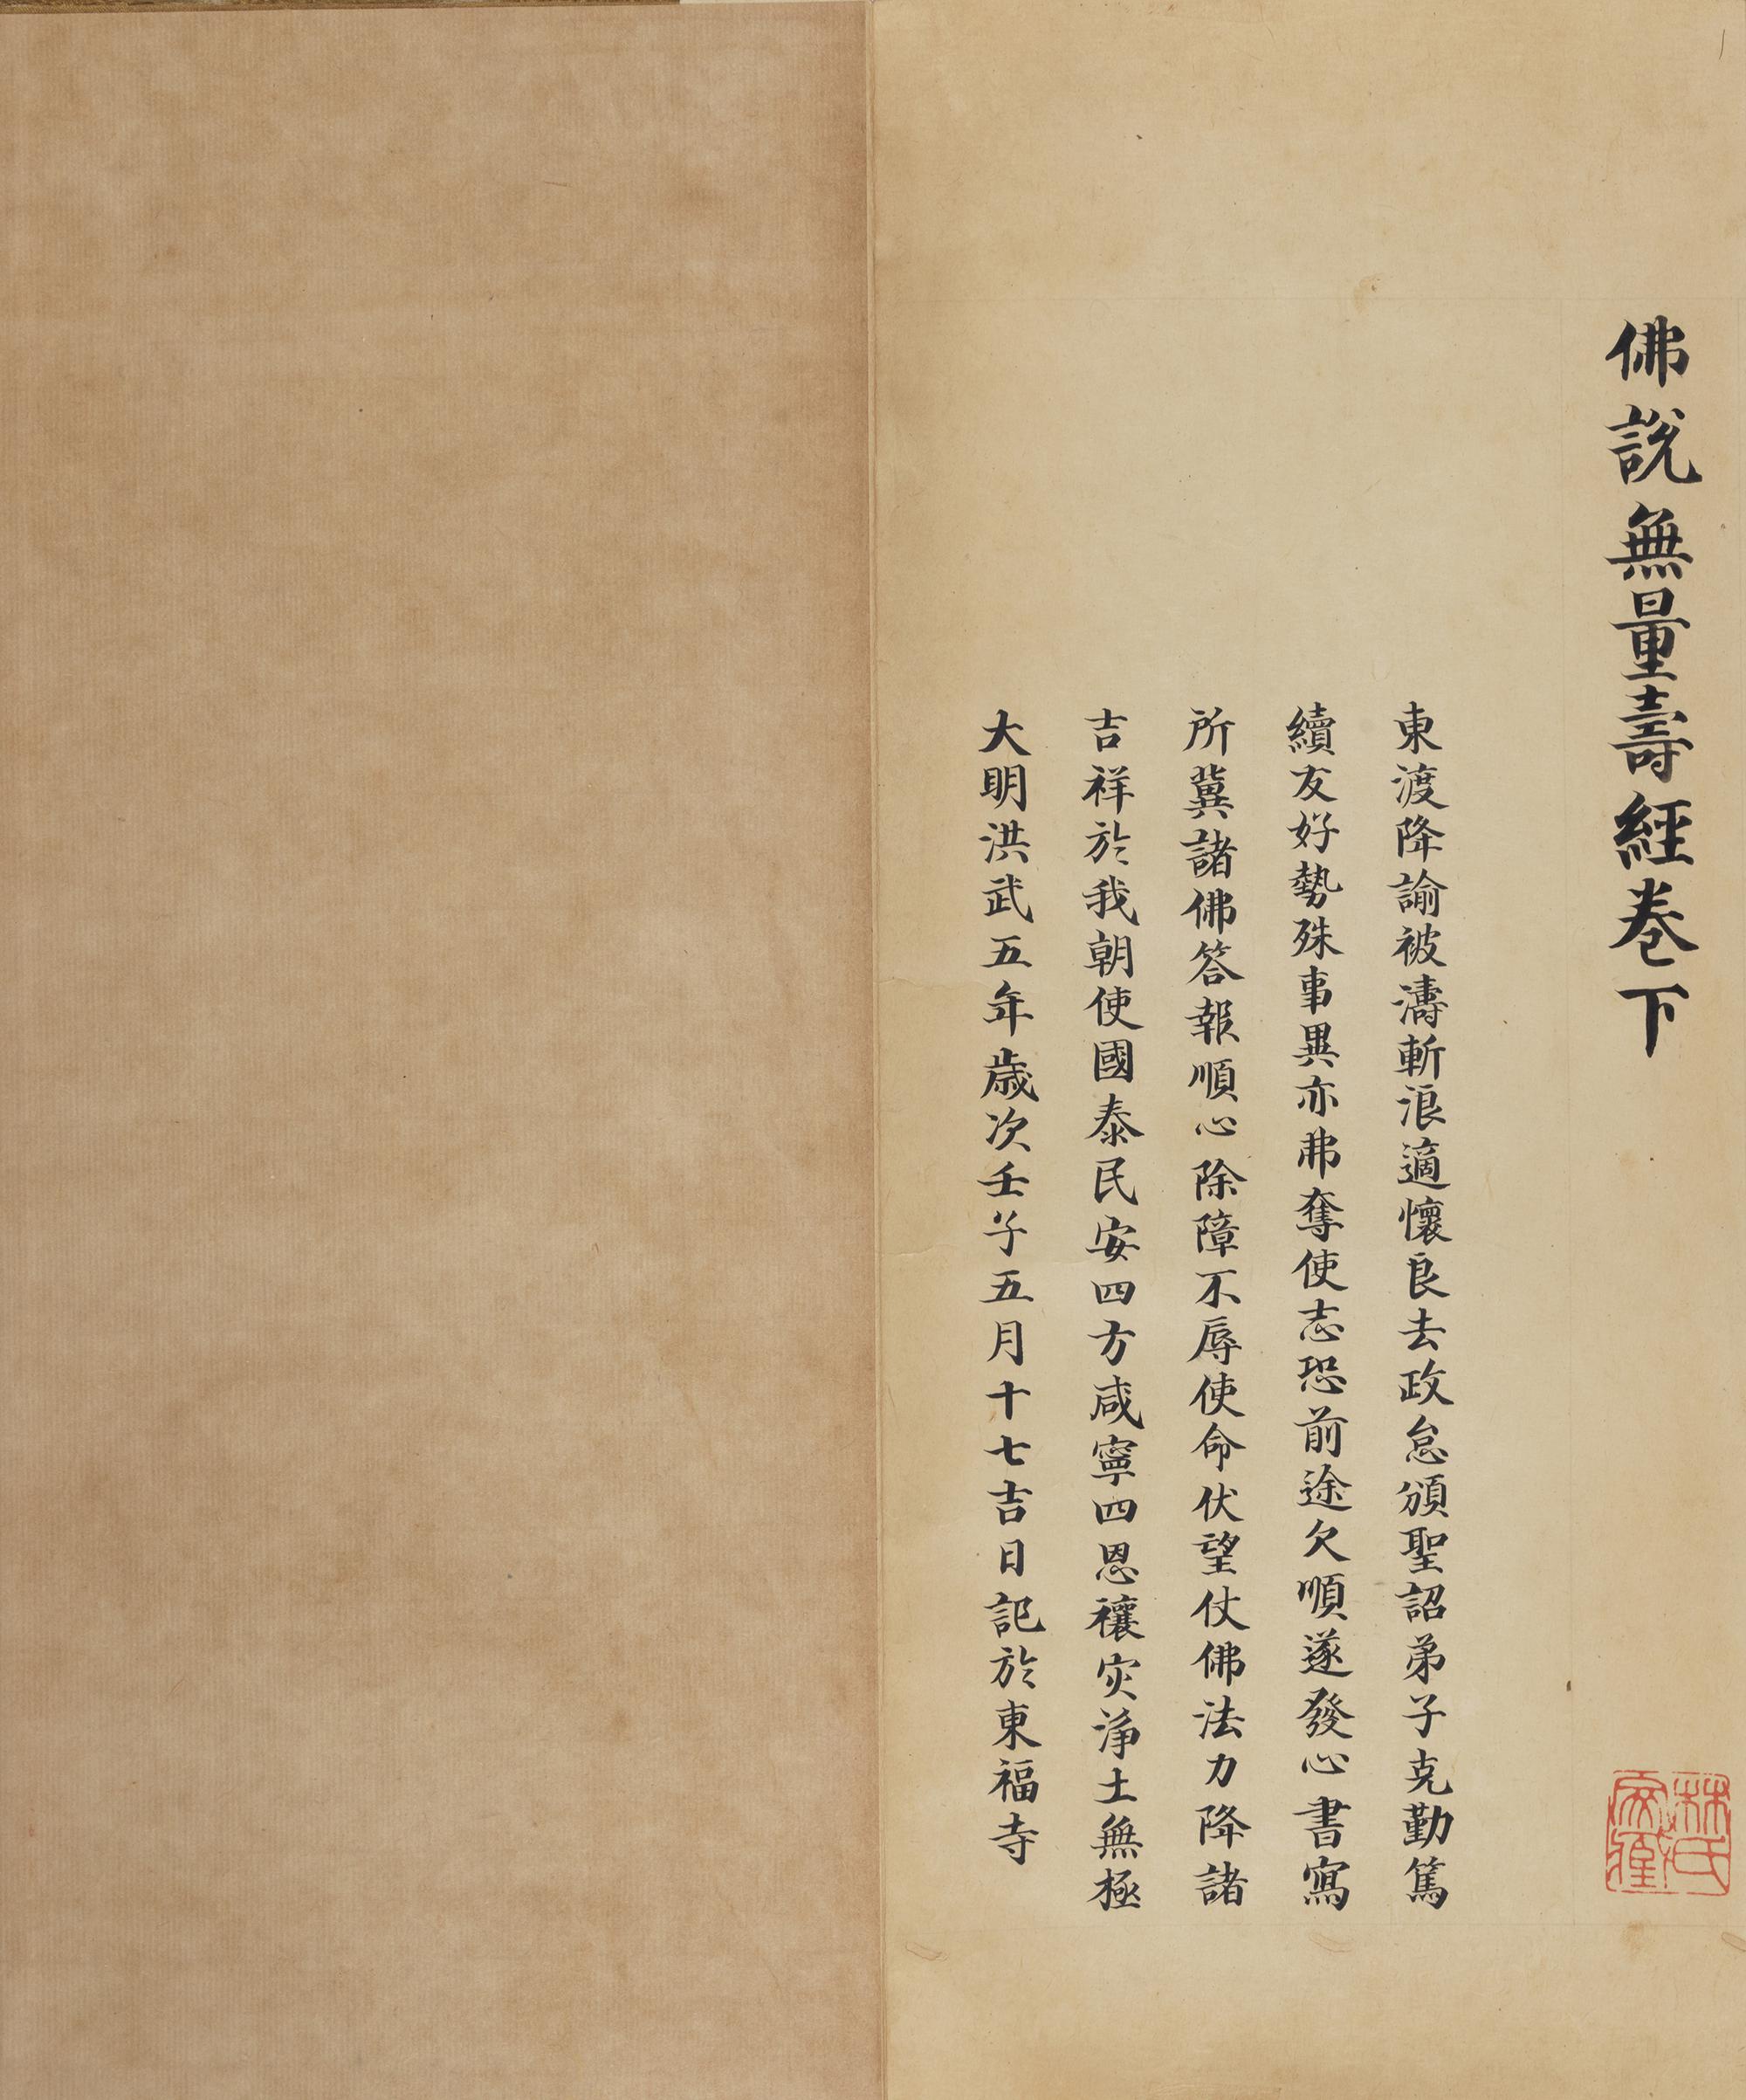 佛説無量壽經卷下
東渡降諭被濤斬浪適懷良去政怠頒聖詔弟子克勤篤
續友好勢殊事異亦弗奪使志恐前途欠順遂發心書寫
所冀諸佛答報順心除障不辱使命伏望仗佛法力降諸
吉祥於我朝使國泰民安四方咸寧四恩禳灾淨土無極
大明洪武五年歲次壬子五月十七吉日記於東福寺